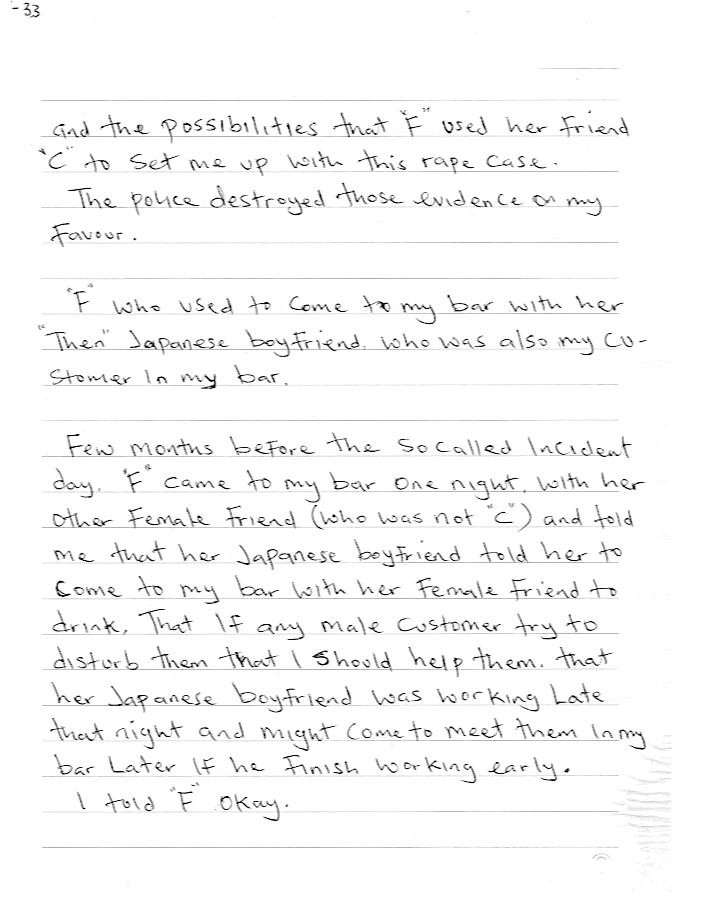 -33
and the possibilities that "F" used her friend
"C" to set me up with this rape case.
The police destroyed those evidence on my
favour.
"F" who used to come to my bar with her
"Then" Japanese boyfriend. who was also my cu-
stomer in my bar.
Few months before the so called incident
day. "F" came to my bar one night. with her
other female friend (who was not "C") and told
me that her Japanese boyfriend told her to
come to my bar with her female friend to
drink. That if any male customer try to
disturb them that I should help them. that
her Japanese boyfriend was working late
that night and might come to meet them in my
bar later if he finish working early.
I told "F" okay.